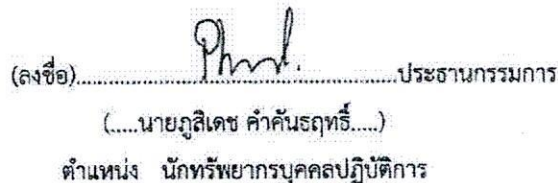 (ลงชื่อ)..........................................................ประธานกรรมการ
(.....นายภูสิเดช คำคันธฤทธิ์.....)
ตำแหน่ง นักทรัพยากรบุคคลปฏิบัติการ